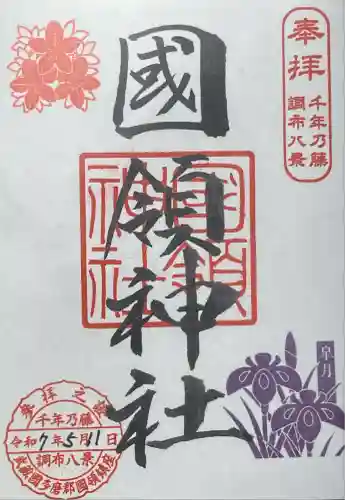 奉拝
千年乃藤
調布八景
國領神社
國領神社
皐月
奉拝之證
千年乃藤
令和7年5月11日
調布八景
武蔵國多磨郡國領鎮座